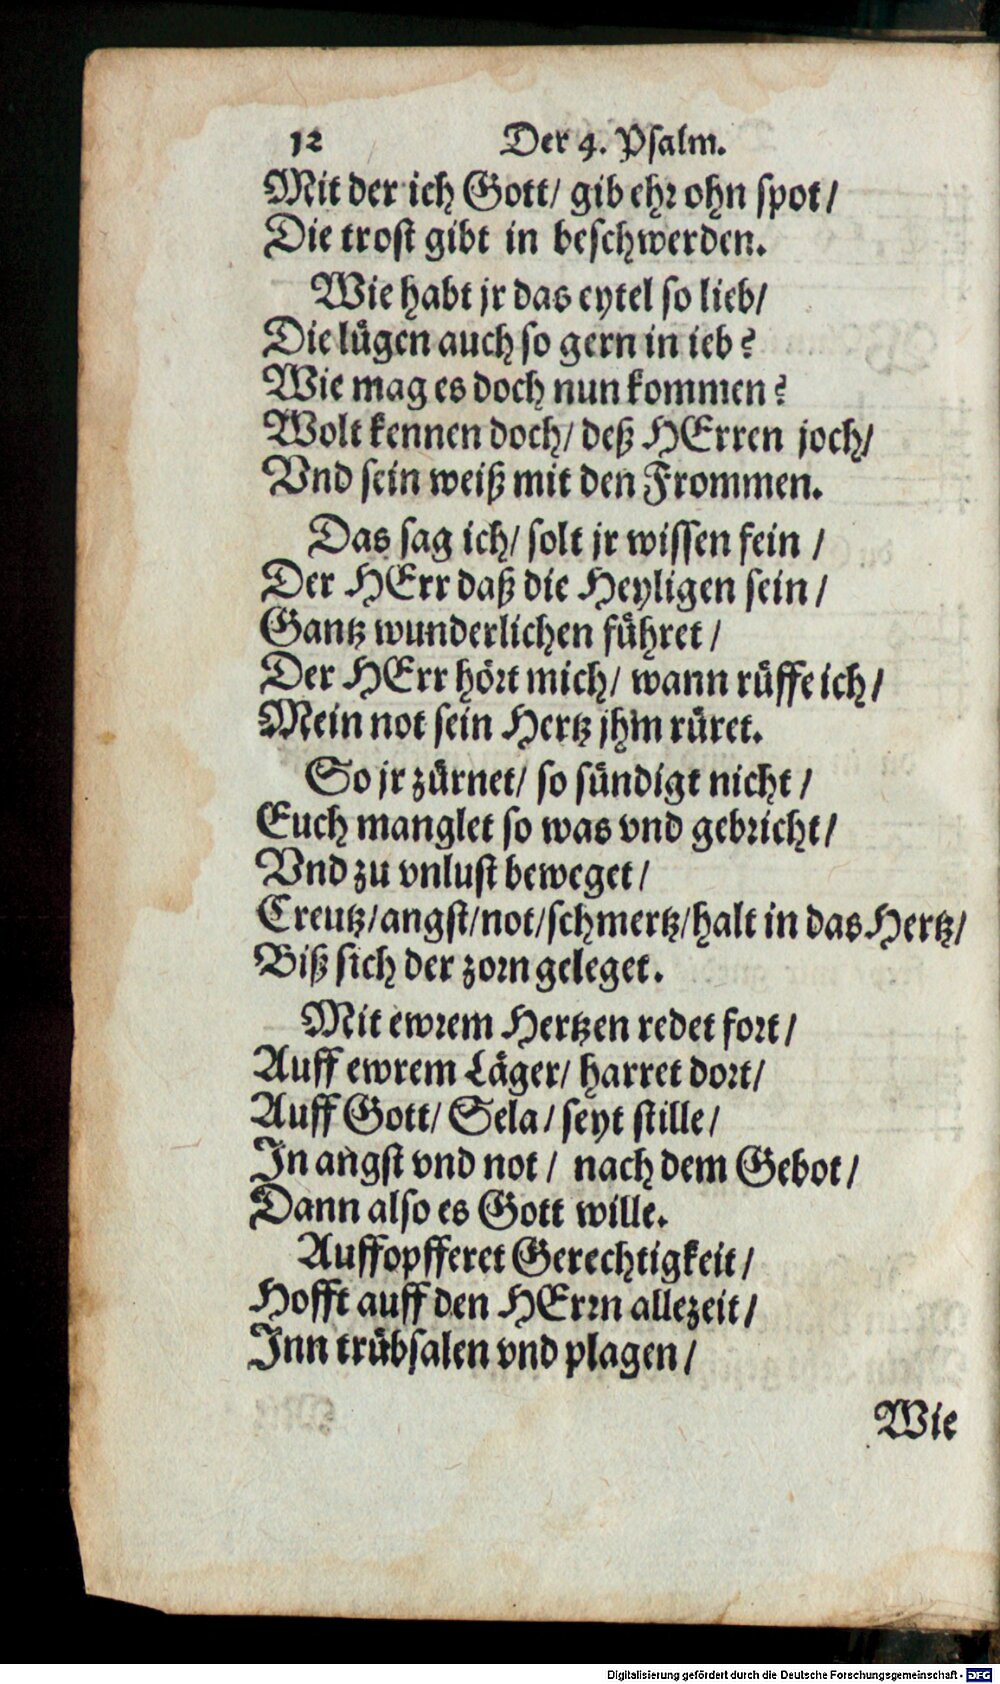 12 Der 4. Psalm.
Mit der ich Gott/ gib ehr ohn spot/
Die trost gibt in beschwerden.
Wie habt jr das eytel so lieb/
Die lügen auch so gern in ieb?
Wie mag es doch nun kommen?
Wolt kennen doch/ deß HErren joch/
Vnd sein weiß mit den Frommen.
Das sag ich/ solt jr wissen fein/
Der HErr daß die Heyligen sein/
Gantz wunderlichen führet/
Der HErr hört mich/ wann rüffe ich/
Mein not sein Hertz jhm rüret.
So jr zürnet/ so sündigt nicht/
Euch manglet so was vnd gebricht/
Vnd zu vnlust beweget/
Creutz/angst/not/schmertz/halt in das Hertz/
Biß sich der zorn geleget.
Mit ewrem Hertzen redet fort/
Auff ewrem Läger/ harret dort/
Auff Gott/ Sela/ seyt stille/
In angst vnd not/ nach dem Gebot/
Dann also es Gott wille.
Auffopfferet Gerechtigkeit/
Hofft auff den HErrn allezeit/
Inn trübsalen vnd plagen/
Wie
Digitalisierung gefördert durch die Deutsche Forschungsgemeinschaft - DFG